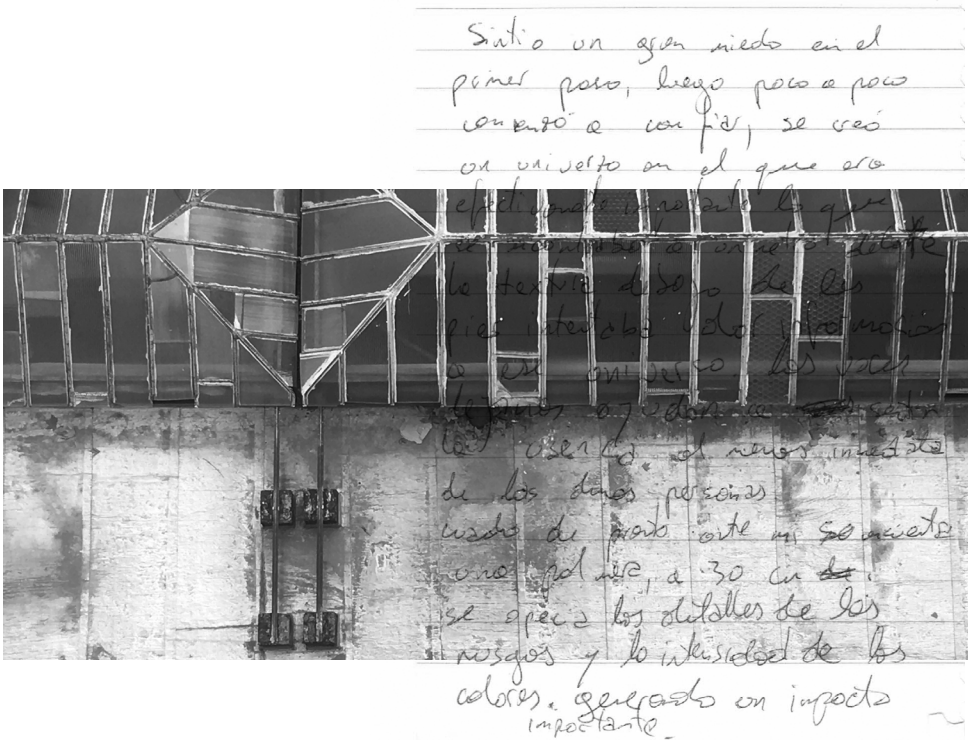 Sintio un gran miedo en el
primer paso, luego poco a poco
comenzó a confiar, se creó
un universo en el que era
efectivamente importante lo que
a un metro delante
la textura debajo de los
pies intentaba
a ese universo las voces
lejanas ayudan a sentir
la ausencia al menos inmediata
de las demas personas
cuando de pronto ante mi se encuentra
una palmera, a 30 cm
se aprecia los detalles de los
musgos y la intensidad de los
colores. generando un impacto
importante.